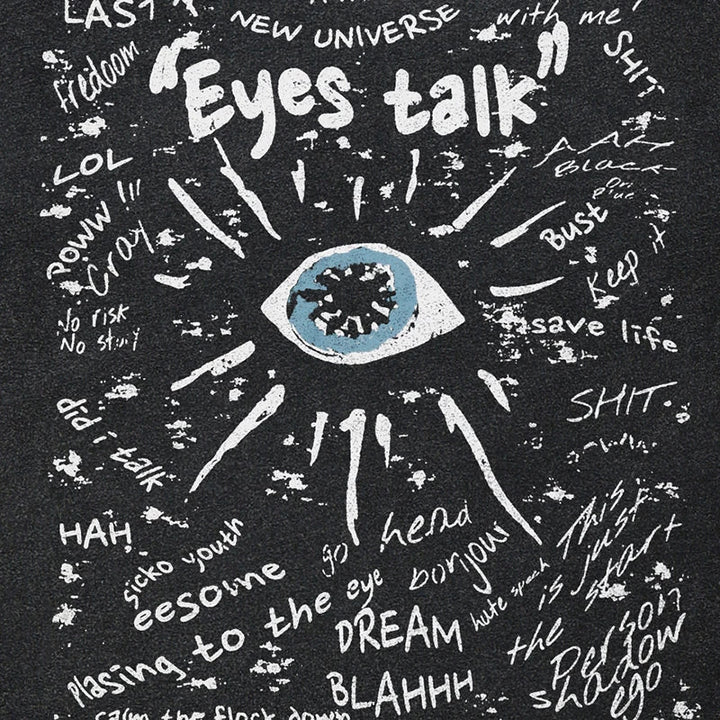 LAST
NEW UNIVERSE
with me
fredoom
"Eyes talk"
SHIT
LOL
AAAH
BLACK
POWW !!!
Croy
BUST
Keep it
No risk
No
save life
did i talk
SHIT.
HAH
go hend
sicko youth
bonjow
This is just
is start
the
eesome
hate speach
Plasing to the eye
DREAM
person
shadow
ego
BLAHHH
calm the flock down